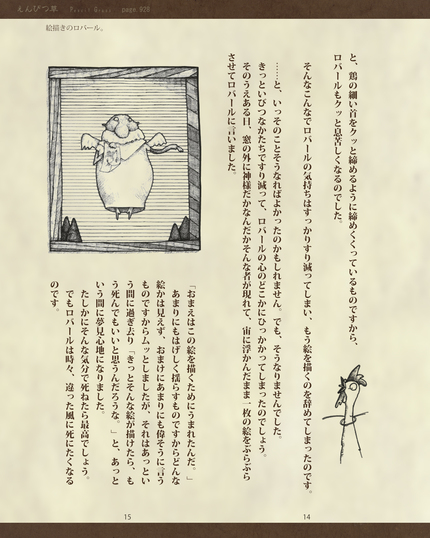 えんぴつ草 Pencil Grass page 020
絵描きのロバール。
と、鶏の細い首をクッと締めるように締めくくっているものですから、
ロバールもクッと息苦しくなるのでした。
そんなこんなでロバールの気持ちはすっかりすり減ってしまい、もう絵を描くのを辞めてしまったのです。
……と、いっそのことそうなればよかったのかもしれません。でも、そうなりませんでした。
きっといびつなかたちですり減って、ロバールの心のどこかにひっかかってしまったのでしょう。
そのうえある日、窓の外に神様だかなんだかそんな者が現れて、宙に浮かんだまま一枚の絵をぶらぶら
させてロバールに言いました。
「おまえはこの絵を描くためにうまれたんだ。」
あまりにもはげしく揺らすものですからどんな
絵かは見えず、おまけにあまりにも偉そうに言う
ものですからムッとしましたが、それはあっとい
う間に過ぎ去り「きっとそんな絵が描けたら、も
う死んでもいいと思うんだろうな。」と、あっと
いう間に夢見心地になりました。
たしかにそんな気分で死ねたら最高でしょう。
でもロバールは時々、違った風に死にたくなる
のです。
15
14